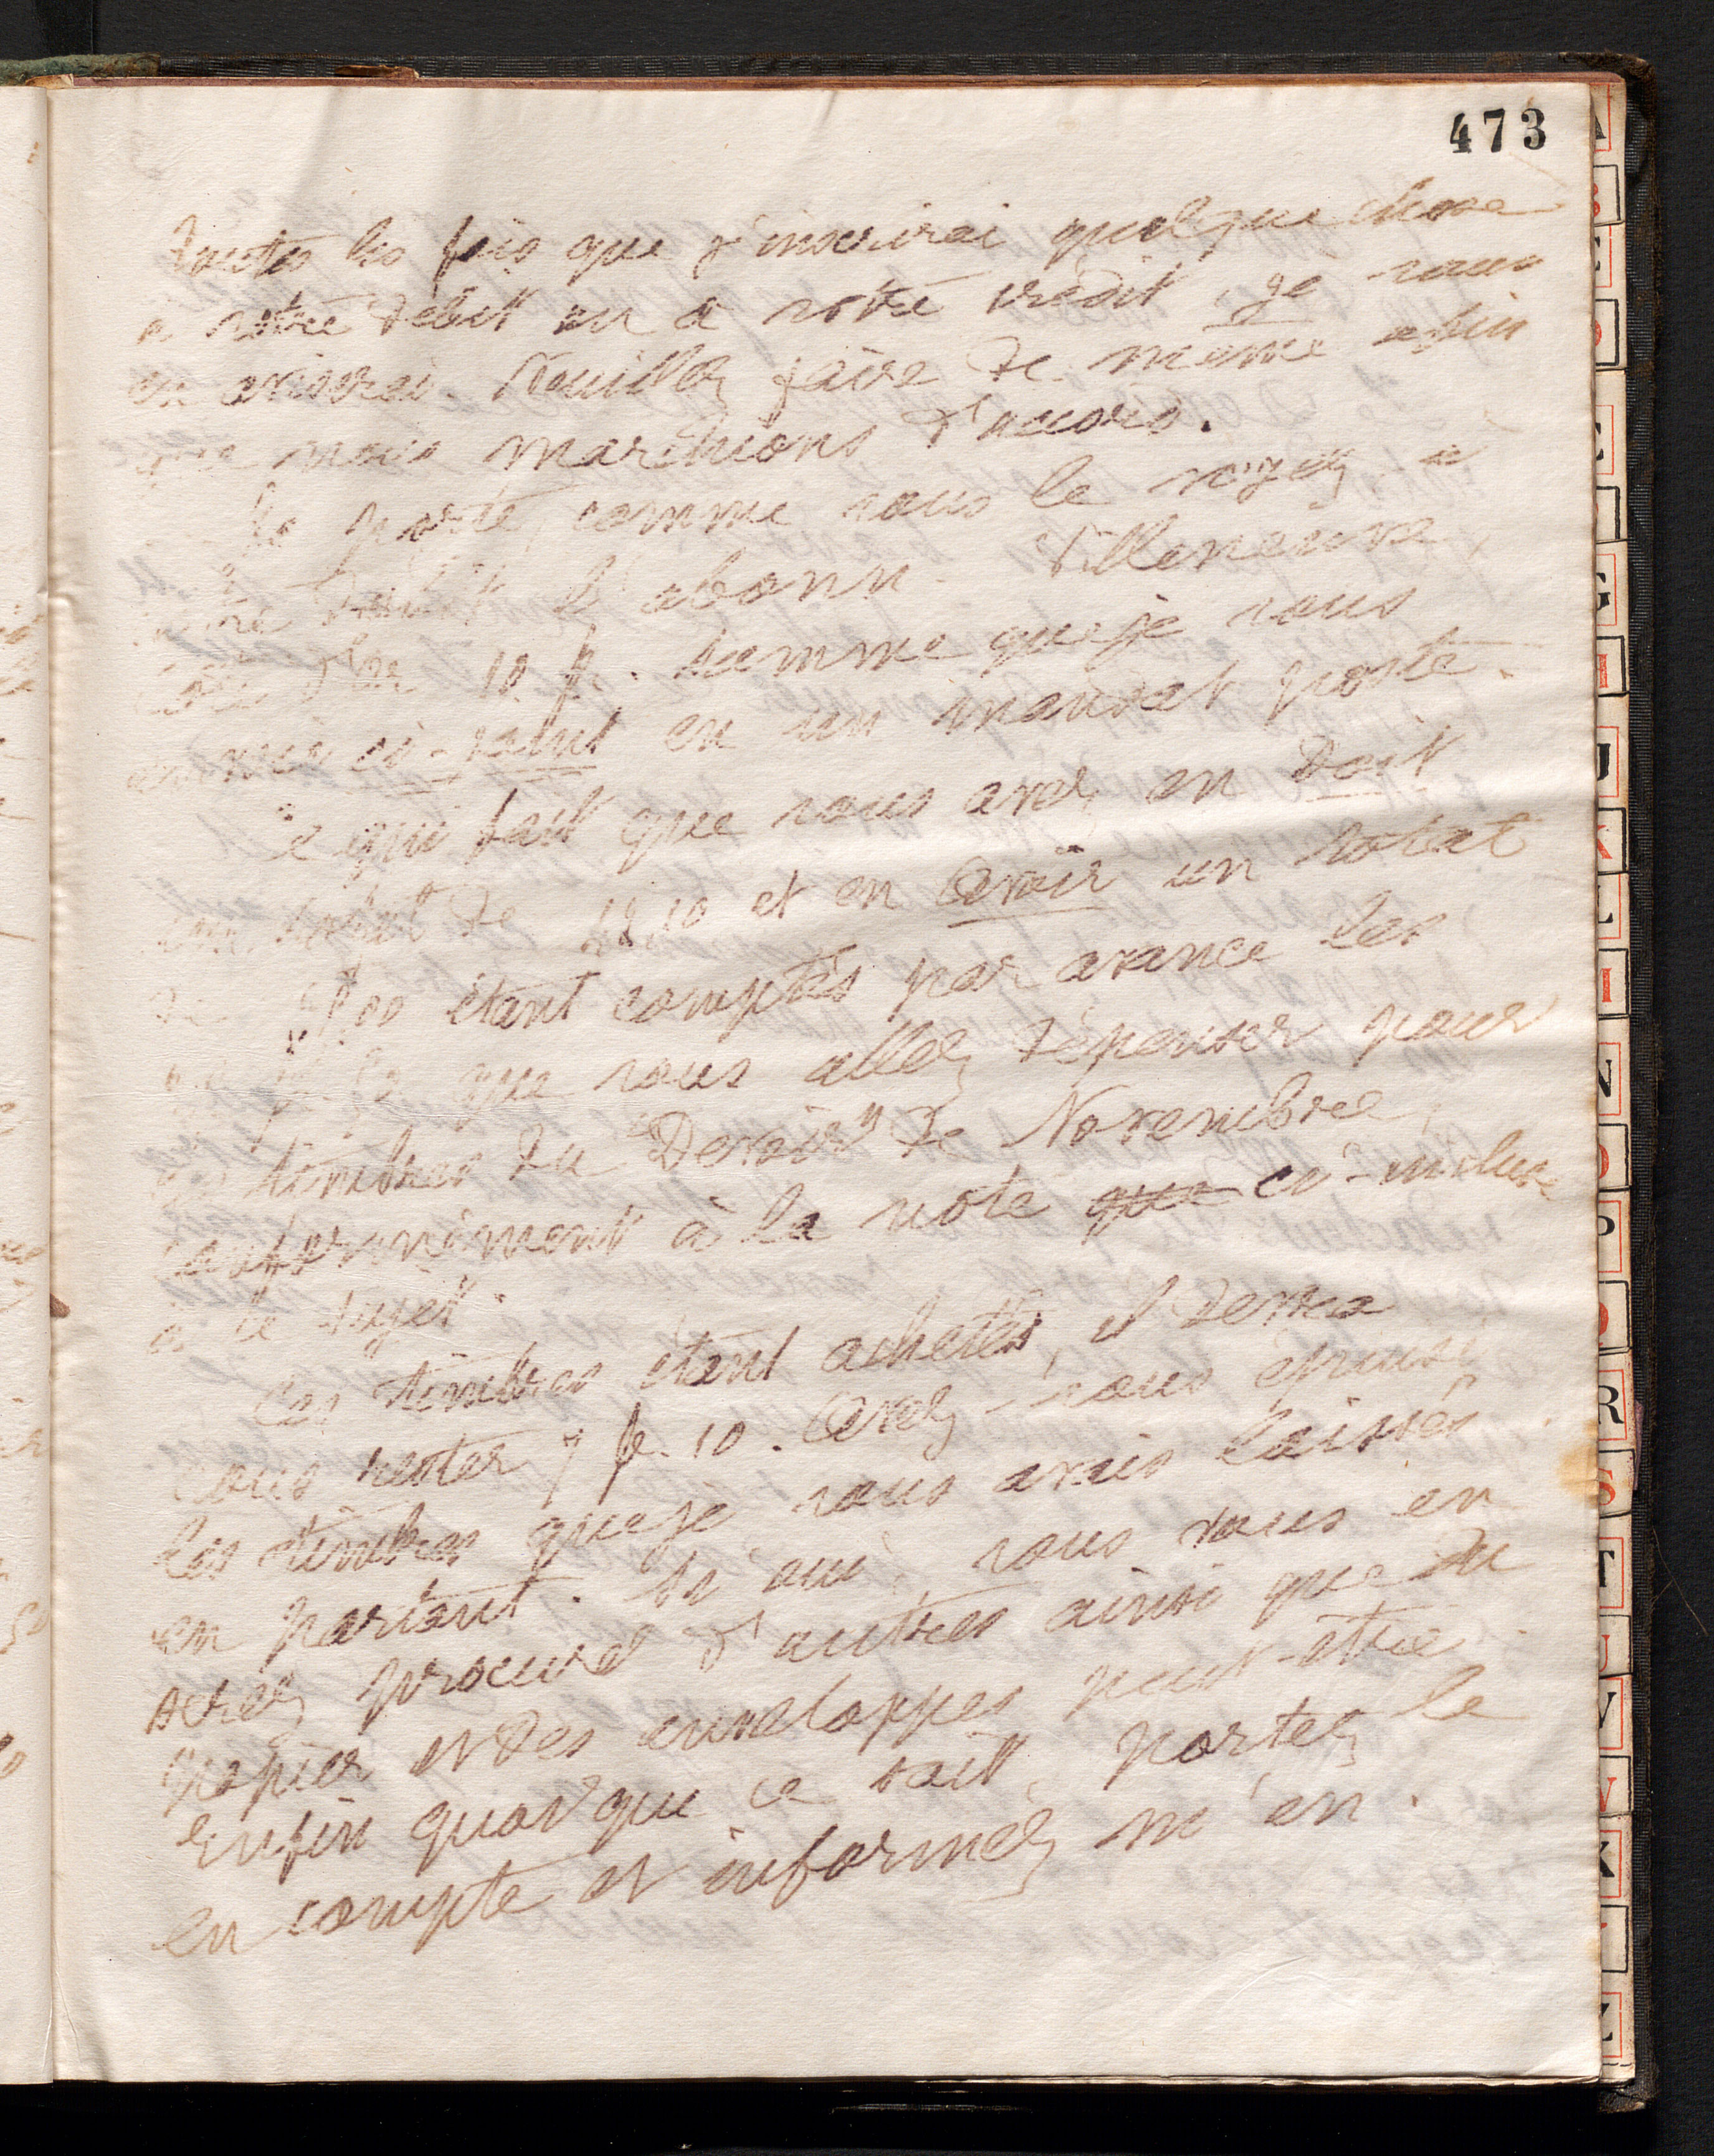 473
Toutes les fois que j'inscrirai quelque chose
à votre débit ou à votre crédit, je vous
en aviserai. Veuillez faire de même afin
que nous marchions d'accord.
Je porte, comme vous le voyez à
votre débit l'abonn. Villeneuve,
10 f. somme que je vous
envoie ci-joint en un mandat poste.
Ce qui fait que vous avez en Doit
un total de et en Avoir un total
de étant comptés par avance les
que vous allez dépenser pour
les timbres du "Devoir" de Novembre,
conformément à la note que ci-incluse
à ce sujet.
Ces timbres étant achetés, il devra
vous rester 7 f. 10. Avez-vous épuisé
les timbres que je vous avais laissés
en partant. Si oui, vous vous en
serez procuré d'autres ainsi que du
papier et des enveloppes peut-être
Enfin quoi que ce soit, portez le
en compte et informez m'en.